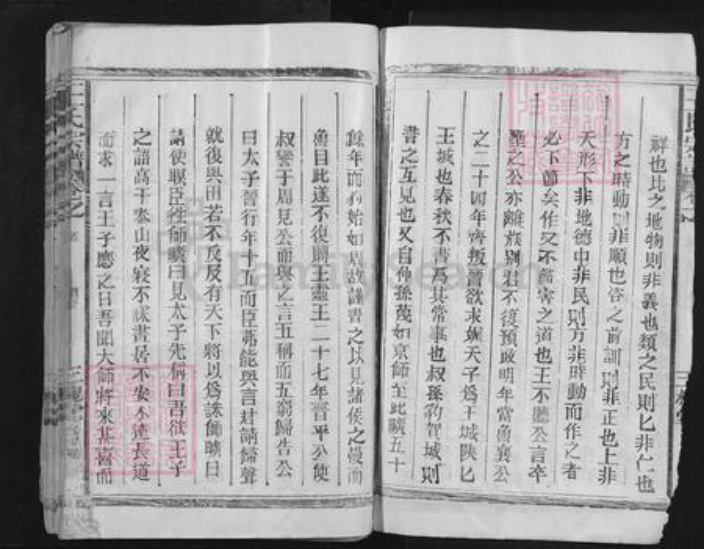 祥也比之地物則非義也類之民則匕非仁也
方之時動則非順也咨之前訓則非正也上非
天形下非地德中非民則方非時動而作之者
必下節矣作又不節害之道也王不聽公言卒
壅之公亦離族別君不復預政明年當魯襄公
之二十四年齊叛晉欲求媚天子爲王城陝匕
王城也春秋不書爲其常事也叔孫豹賀城則
書之互見也又自仲孫蔑如京師至此曠五十
餘年而豹始如周故謹書之以見諸侯之慢而
魯目此遂不復聘王靈王二十七年晉平公使
叔譽于周見公而與之言五稱而五窮歸告公
曰太子晉行年十五而臣弗能與言君請歸聲
就復與田若不反及有天下將以爲誅師曠曰
請使瞑臣往師曠曰見太子先稱曰吾欲王子
之語高于泰山夜寢不寐晝居不安不遠長道
而求一言王子應之曰吾聞大師將來甚喜而
王氏宗譜
三槐堂
FamilySearch